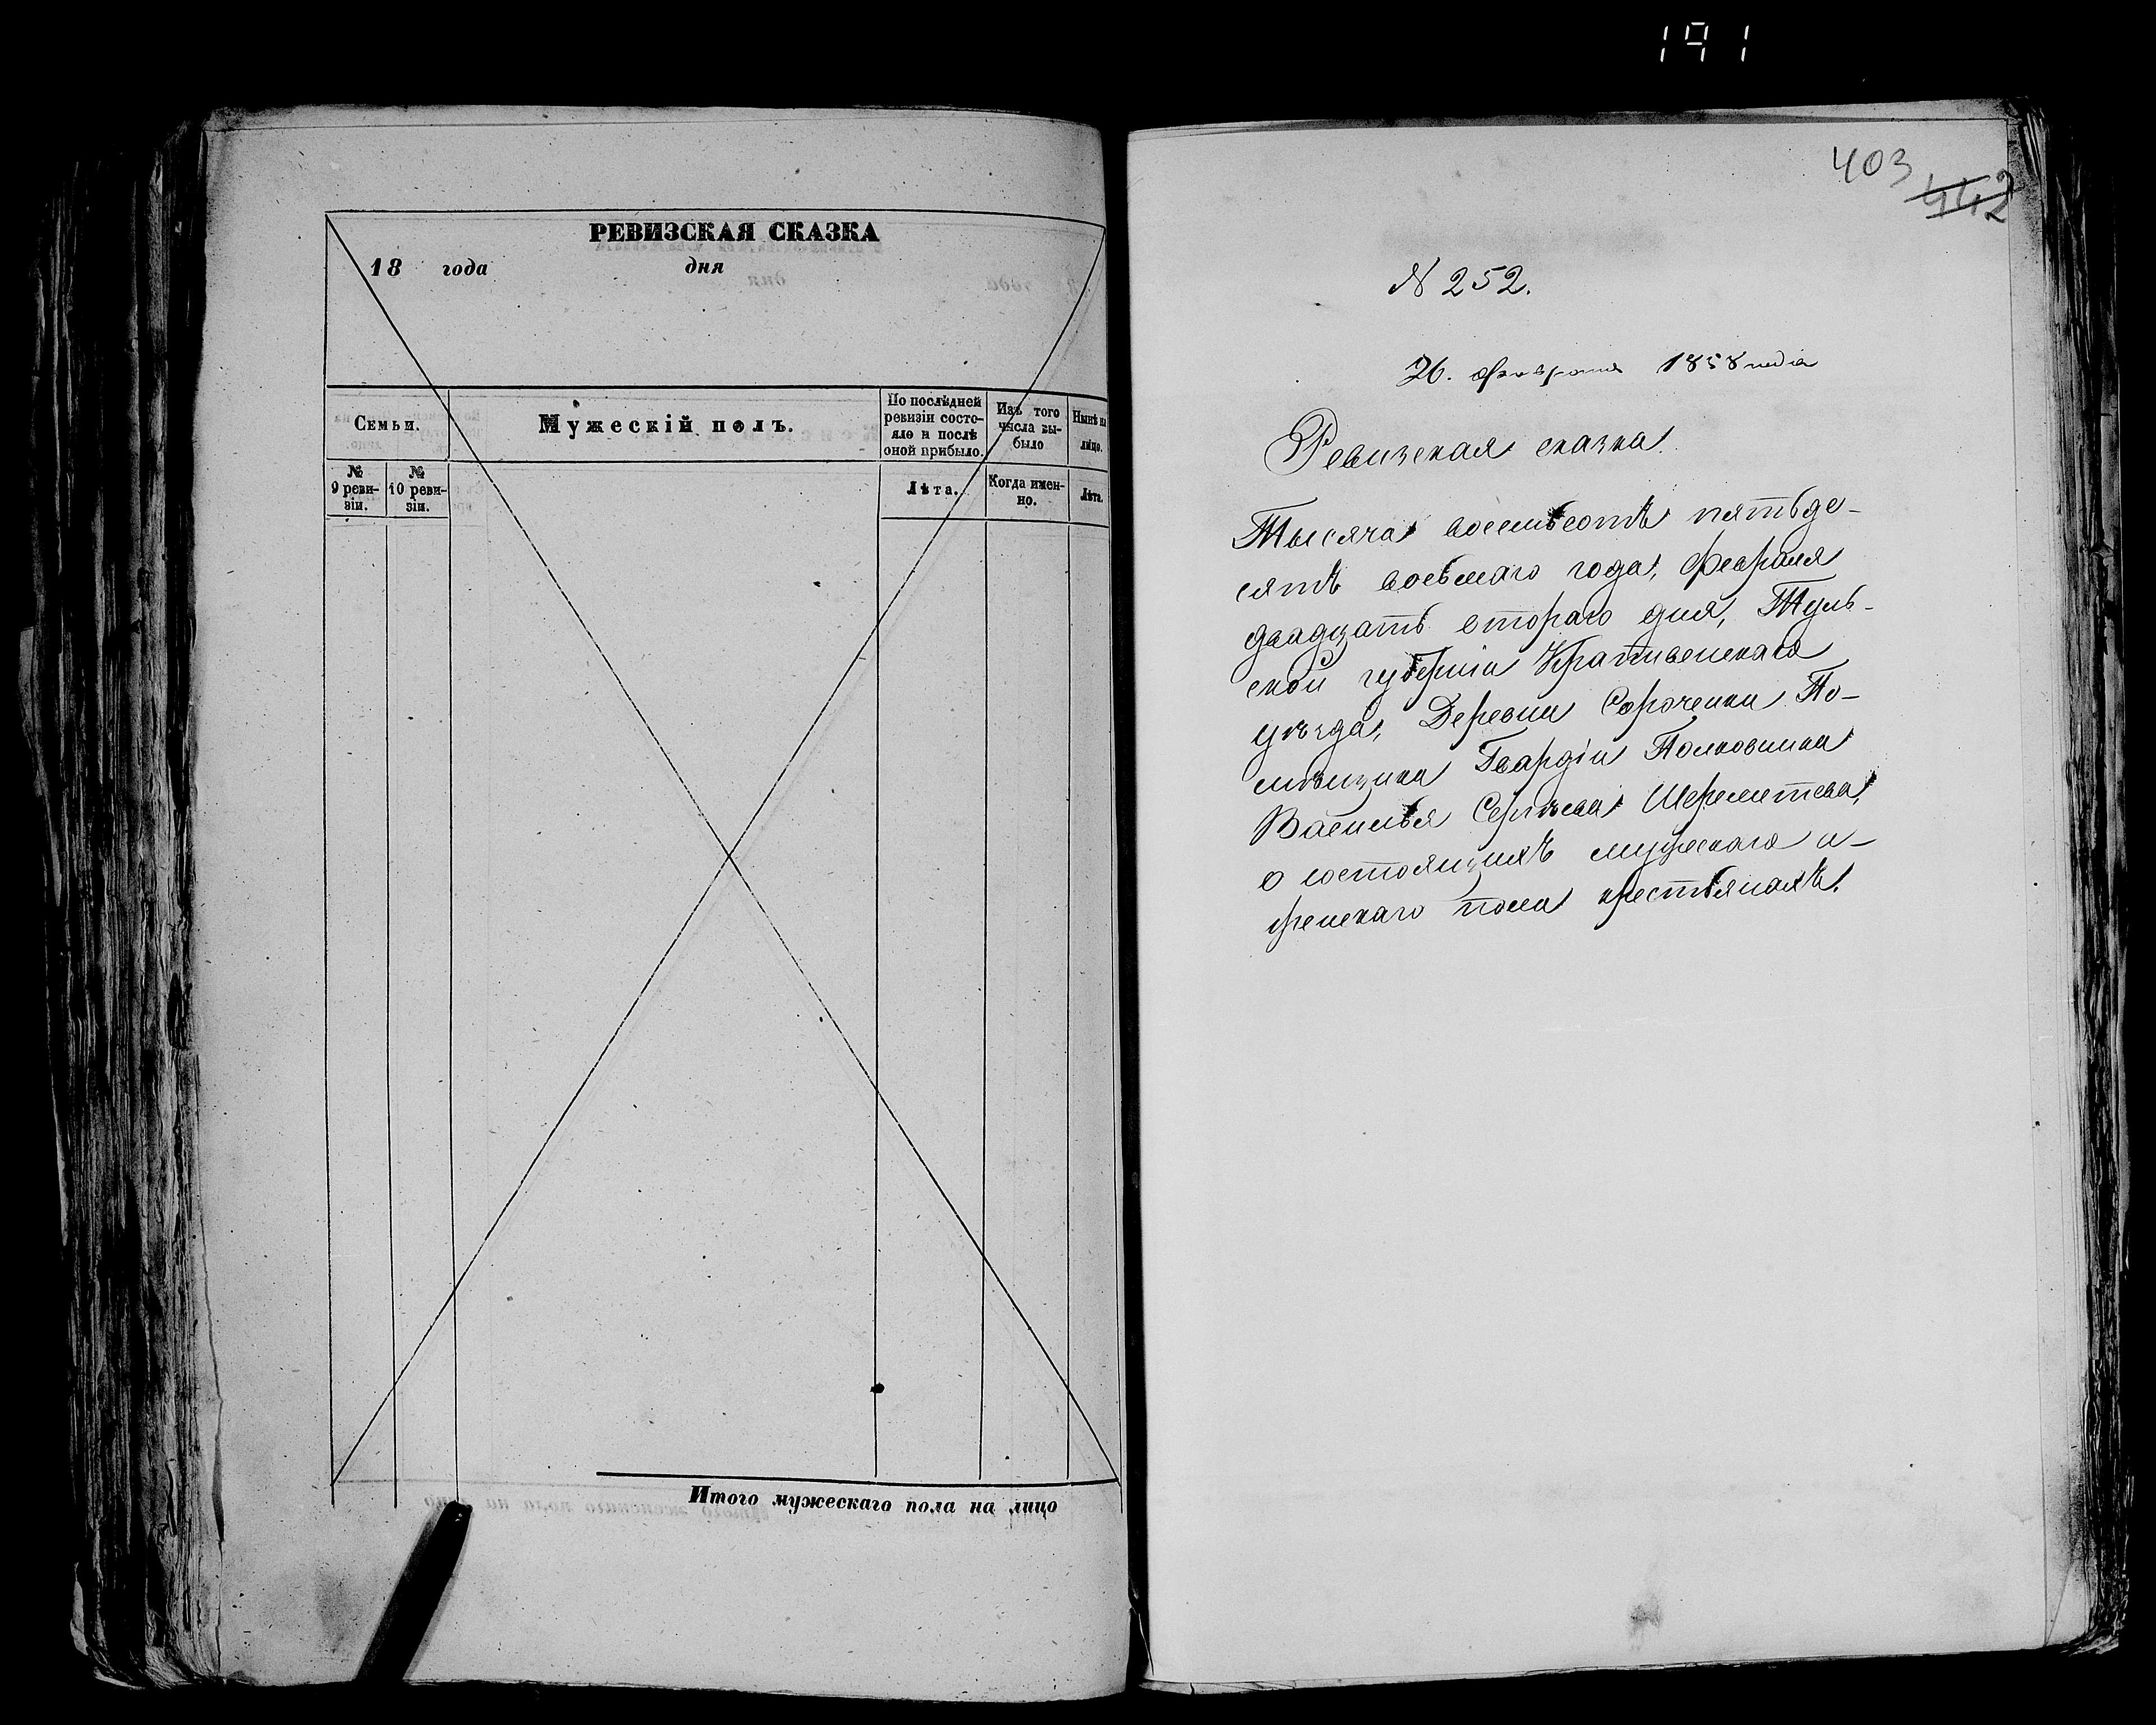 191
РЕВИЗСКАЯ СКАЗКА
18 года дня
Семьи.
Мужескій полъ.
По послѣдней ревизіи состояло и послѣ оной прибыло.
Изъ того числа выбыло
Нынѣ на лицо.
№ 9 ревизіи.
№ 10 ревизіи.
Лѣта.
Когда именно.
Лѣта.
Итого мужескаго пола на лицо
403
442
N 252.
26. февраля 1858 года
Ревизская сказка.
Тысяча восемьсотъ пятьде-
сятъ восьмаго года, Февраля
двадцать втораго дня, Туль-
ской губерніи Крапивенскаго
уѣзда, Деревни Сороченки По-
мѣщика Гвардіи Полковника
Василья Сергѣева Шереметева,
о состоящихъ мужескаго и-
женскаго пола крестьянахъ.